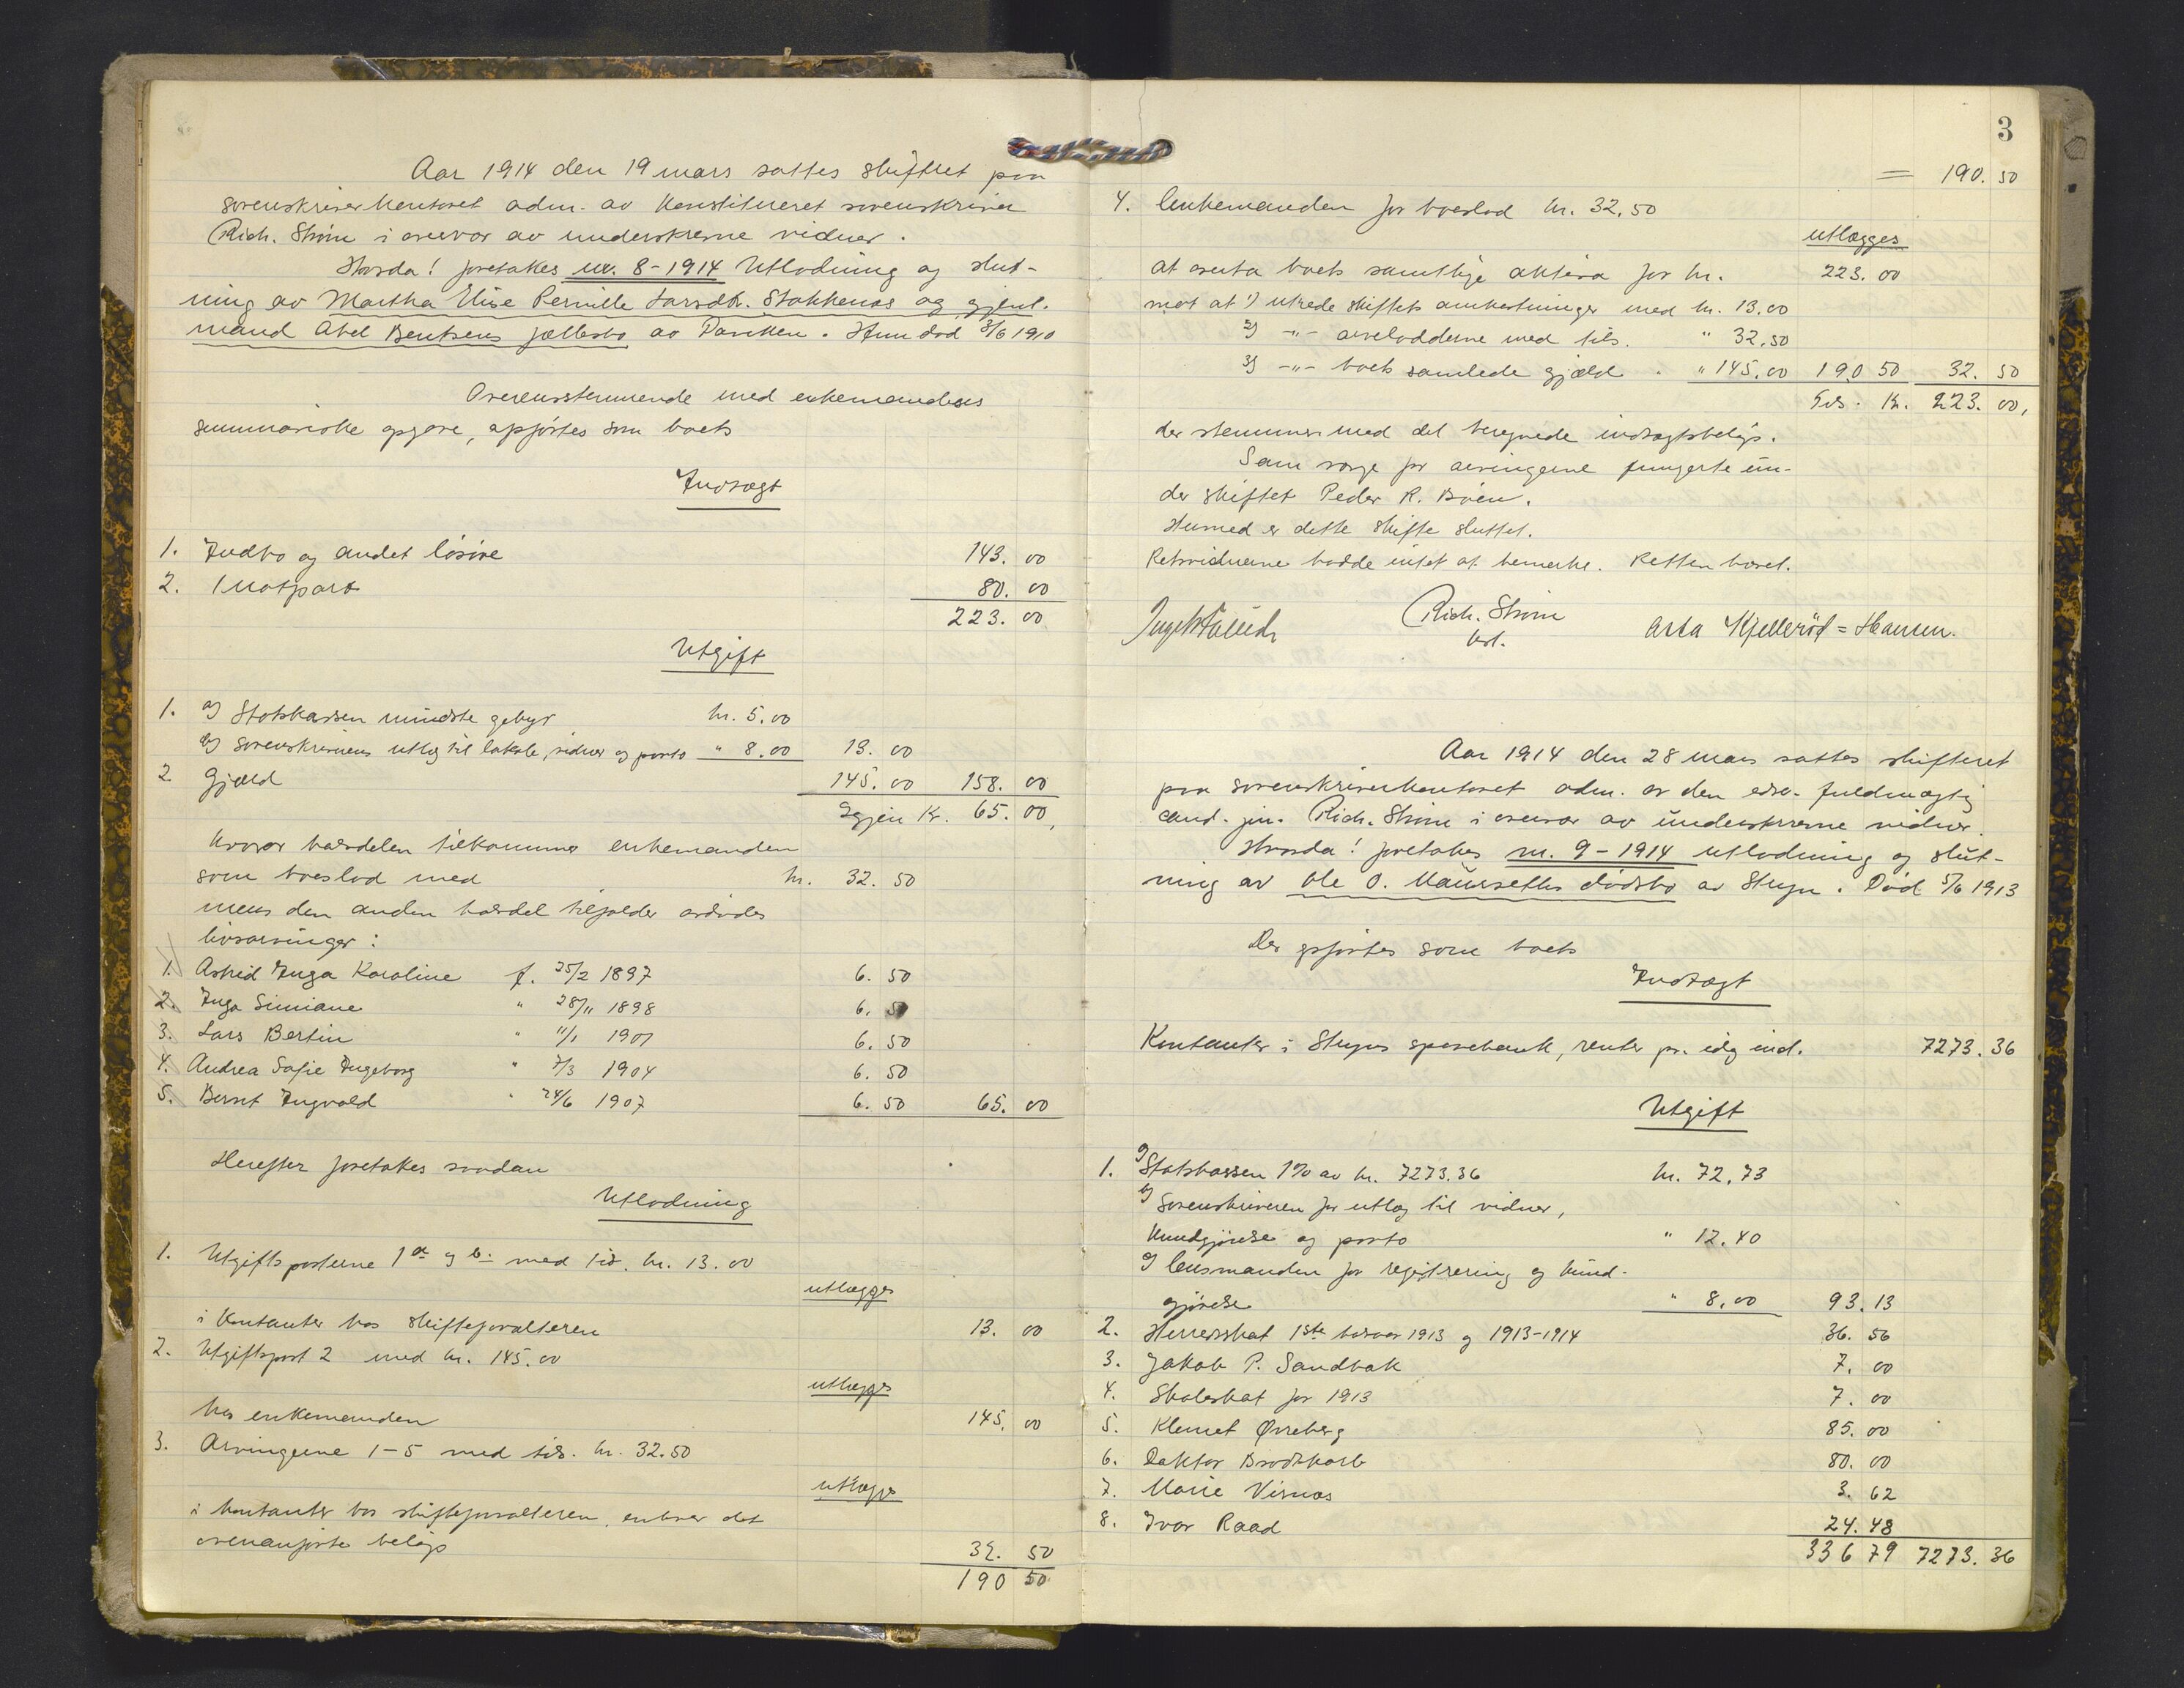 Aar 1914 den 19 mars sattes skifteret paa
sorenskriverkontoret adm. av konstitueret sorenskriver
Rich. Ström i overvær av underskrevne vidner.
Hvorda! foretakes nr. 8-1914 Utlodning og slut-
ning av Martha Elise Pernille Larsdtr. Stokkenæs og gjenl.
mand Abel Bentsens fællesbo av Davikken. Hun död 3/6 1910
Overensstemmende med enkemandens
summariske opgave, opförtes som boets
Indtægt
1. Indbo og andet lösöre 143. 00
2. 1 notpart 80. 00
223. 00
Utgift
1. a) Statskassen mindste gebyr kr. 5.00
b) sorenskriverens utlæg til lokale, vidner og porto " 8.00 13. 00
2 Gjæld 145. 00 158. 00
Igjen Kr. 65. 00,
hvorav halvdelen tilkommer enkemanden
som boeslod med kr. 32. 50
mens den anden halvdel tilfalder avdödes
livsarvinger:
1. Astrid Inga Karoline f. 25/2 1897 6. 50
2. Inga Simiane " 28/11 1898 6. 50
3. Lars Bertin " 11/1 1901 6. 50
4. Andrea Sofie Ingeborg " 7/3 1904 6. 50
5. Bernt Ingvald " 24/6 1907 6. 50 65. 00
Herefter foretakes saadan
Utlodning
1. Utgiftsposterne 1 a og b. med tils. kr. 13.00
utlægges
i kontanter hos skifteforvalteren 13. 00
2. Utgiftspost 2 med kr. 145.00
utlægges
hos enkemanden 145. 00
3. Arvingerne 1-5 med tils. kr. 32.50
utlægges
i kontanter hos skifteforvalteren, enhver det
ovenanförte belöp 32. 50
190 50
3
= 190. 50
4. Enkemanden for boeslod kr. 32.50
utlægges
at overta boets samtlige aktiva for kr. 223. 00
mot at 1) utrede skiftets omkostninger med kr. 13.00
2) -"- arvelodderne med tils. " 32.50
3) -"- boets samlede gjæld " " 145.00 190 50 32. 50
Tils. Kr. 223. 00,
der stemmer med det beregnede indtægtsbelöp.
Som verge for arvingerne fungerte un-
der skiftet Peder R. Böen.
Hermed er dette skifte sluttet.
Retsvidnerne hadde intet at bemerke. Retten hævet.
Rich. Ström
kst.
Asta Kjelleröd=Hansen.
Aar 1914 den 28 mars sattes skifteret
paa sorenskriverkontoret adm. av den edsv. fuldmægtig
cand. jur. Rich. Ström i overvær av underskrevne vidner.
Hvorda! foretakes nr. 9-1914 utlodning og slut-
ning av Ole O. Maurseths dödsbo av Stryn. Död 5/6 1913
Der opförtes som boets
Indtægt
Kontanter i Stryns sparebank, renter pr. idag ind. 7273. 36
Utgift
1. a) Statskassen 1% av kr. 7273.36 kr. 72.73
b) Sorenskriveren for utlæg til vidner,
kundgjörelse og porto " 12.40
c) lensmanden for registrering og kund-
gjörelse " 8.00 93. 13
2. Herredsskat 1ste halvaar 1913 og 1913-1914 36. 56
3. Jakob P. Sandbak 7. 00
4. Skoleskat for 1913 7. 00
5. Klemet Övreberg 85. 00
6. Doktor Brodtkorb 80. 00
7. Marie Visnæs 3. 62
8. Ivar Raad 24. 48
336 79 7273. 36